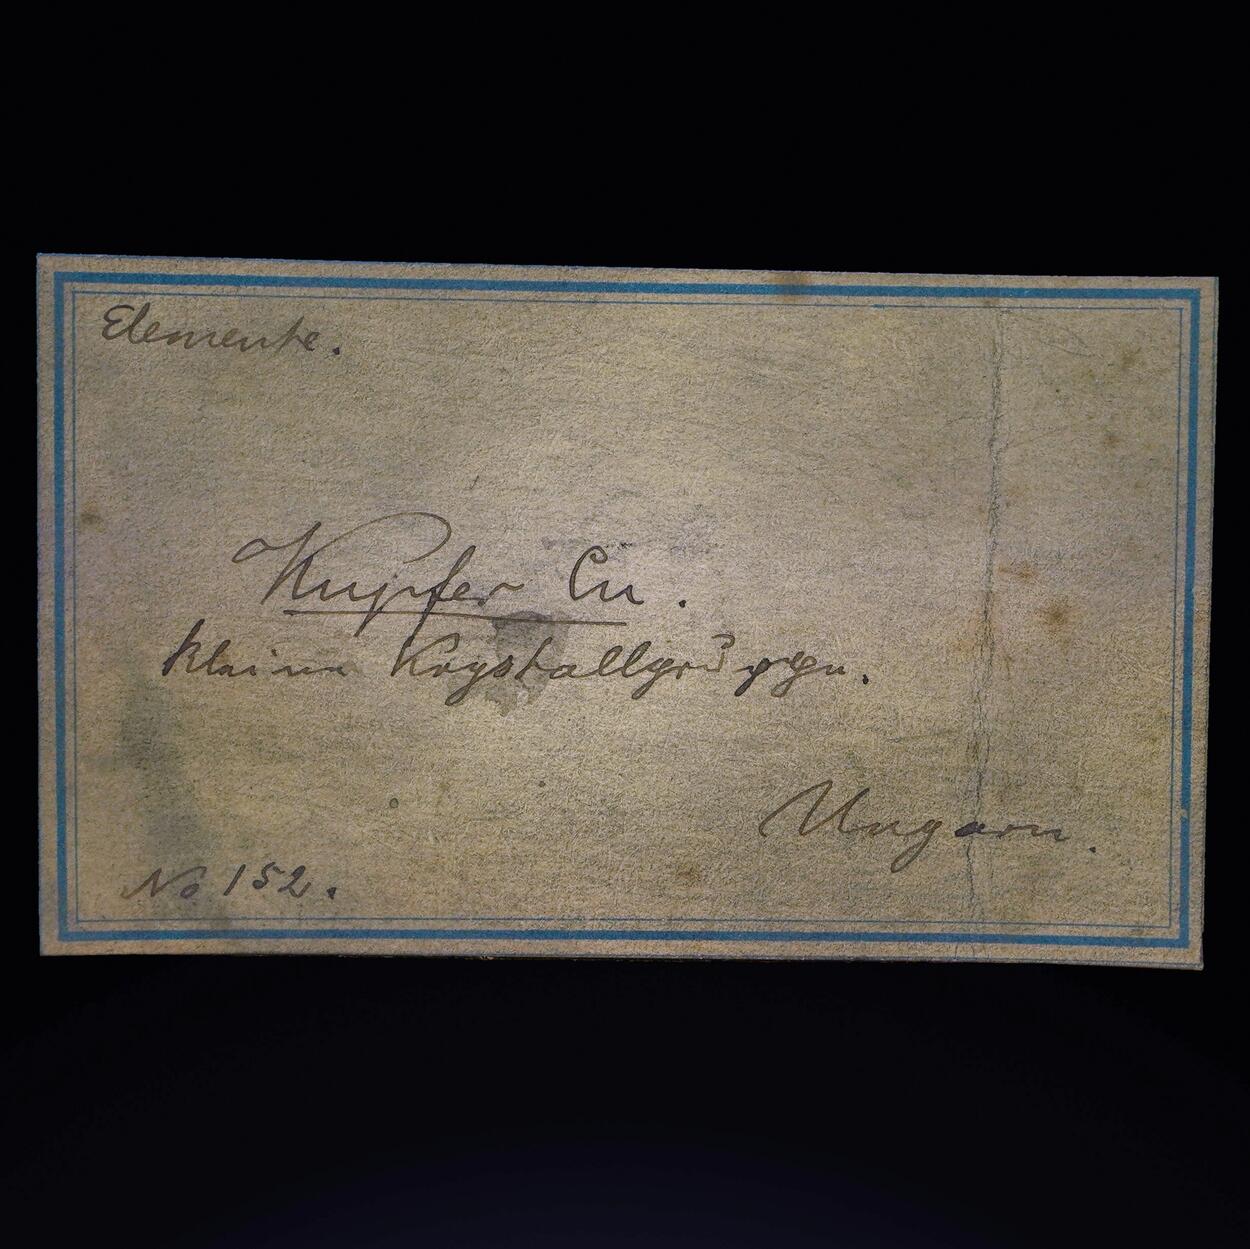 Elemente.
Kupfer Cu.
kleine Krystallgruppe.
Ungarn.
No 152.